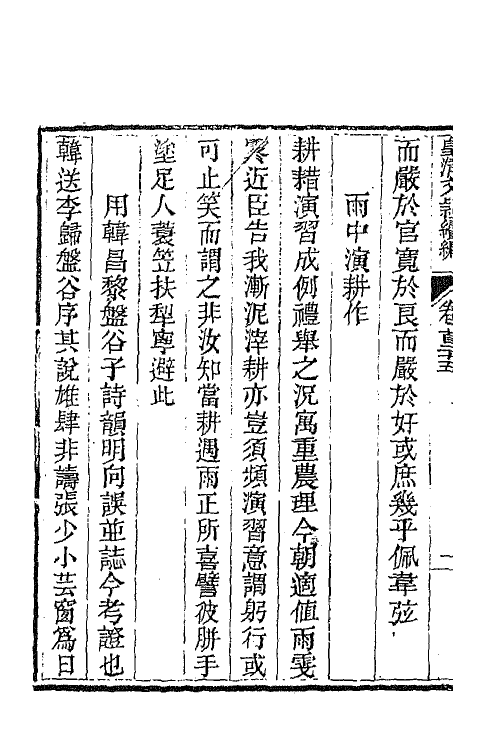 皇淸文穎續編
卷
而嚴於官寬於良而嚴於奸或庶幾乎佩韋弦
雨中演耕作
耕耤演習成例禮舉之況寓重農理今朝適值雨雯
寒近臣告我漸泥滓耕亦豈須頻演習意謂躬行或
可止笑而謂之非汝知當耕遇雨正所喜譬彼胼手
塗足人蓑笠扶犁寧避此
用韓昌黎盤谷子詩韻明向誤並誌今考證也
韓送李歸盤谷序其說雄肆非譸張少小芸窗爲日